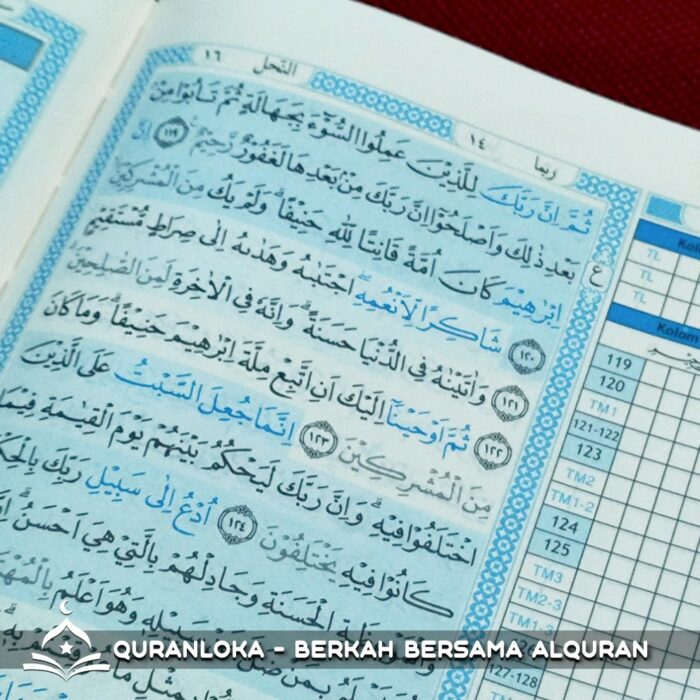 النحل ١٦
ربما ١٤
ثُمَّ اِنَّ رَبَّكَ لِلَّذِيْنَ عَمِلُوا السُّوْۤءَ بِجَهَالَةٍ ثُمَّ تَابُوْا مِنْۢ
بَعْدِ ذٰلِكَ وَاَصْلَحُوْٓا اِنَّ رَبَّكَ مِنْۢ بَعْدِهَا لَغَفُوْرٌ رَّحِيْمٌ ١١٩ اِنَّ
اِبْرٰهِيْمَ كَانَ اُمَّةً قَانِتًا لِّلّٰهِ حَنِيْفًاۗ وَلَمْ يَكُ مِنَ الْمُشْرِكِيْنَ
ع
١٢٠ شَاكِرًا لِّاَنْعُمِهٖۗ اِجْتَبٰىهُ وَهَدٰىهُ اِلٰى صِرَاطٍ مُّسْتَقِيْمٍ
١٢١ وَاٰتَيْنٰهُ فِى الدُّنْيَا حَسَنَةًۗ وَاِنَّهٗ فِى الْاٰخِرَةِ لَمِنَ الصّٰلِحِيْنَۗ
١٢٢ ثُمَّ اَوْحَيْنَآ اِلَيْكَ اَنِ اتَّبِعْ مِلَّةَ اِبْرٰهِيْمَ حَنِيْفًاۗ وَمَا كَانَ
مِنَ الْمُشْرِكِيْنَ ١٢٣ اِنَّمَا جُعِلَ السَّبْتُ عَلَى الَّذِيْنَ
اخْتَلَفُوْا فِيْهِۗ وَاِنَّ رَبَّكَ لَيَحْكُمُ بَيْنَهُمْ يَوْمَ الْقِيٰمَةِ فِيْمَا
كَانُوْا فِيْهِ يَخْتَلِفُوْنَ ١٢٤ اُدْعُ اِلٰى سَبِيْلِ رَبِّكَ
الْحَسَنَةِ وَجَادِلْهُمْ بِالَّتِيْ هِيَ اَحْسَنُ
بِمَنْ ضَلَّ عَنْ سَبِيْلِهٖ وَهُوَ اَعْلَمُ
TL
TL
TL
Kolom
119
120
TM1
121-122
123
TM2
TM1-2
124
125
TM3
TM2-3
TM1-3
127-128
QURANLOKA - BERKAH BERSAMA ALQURAN